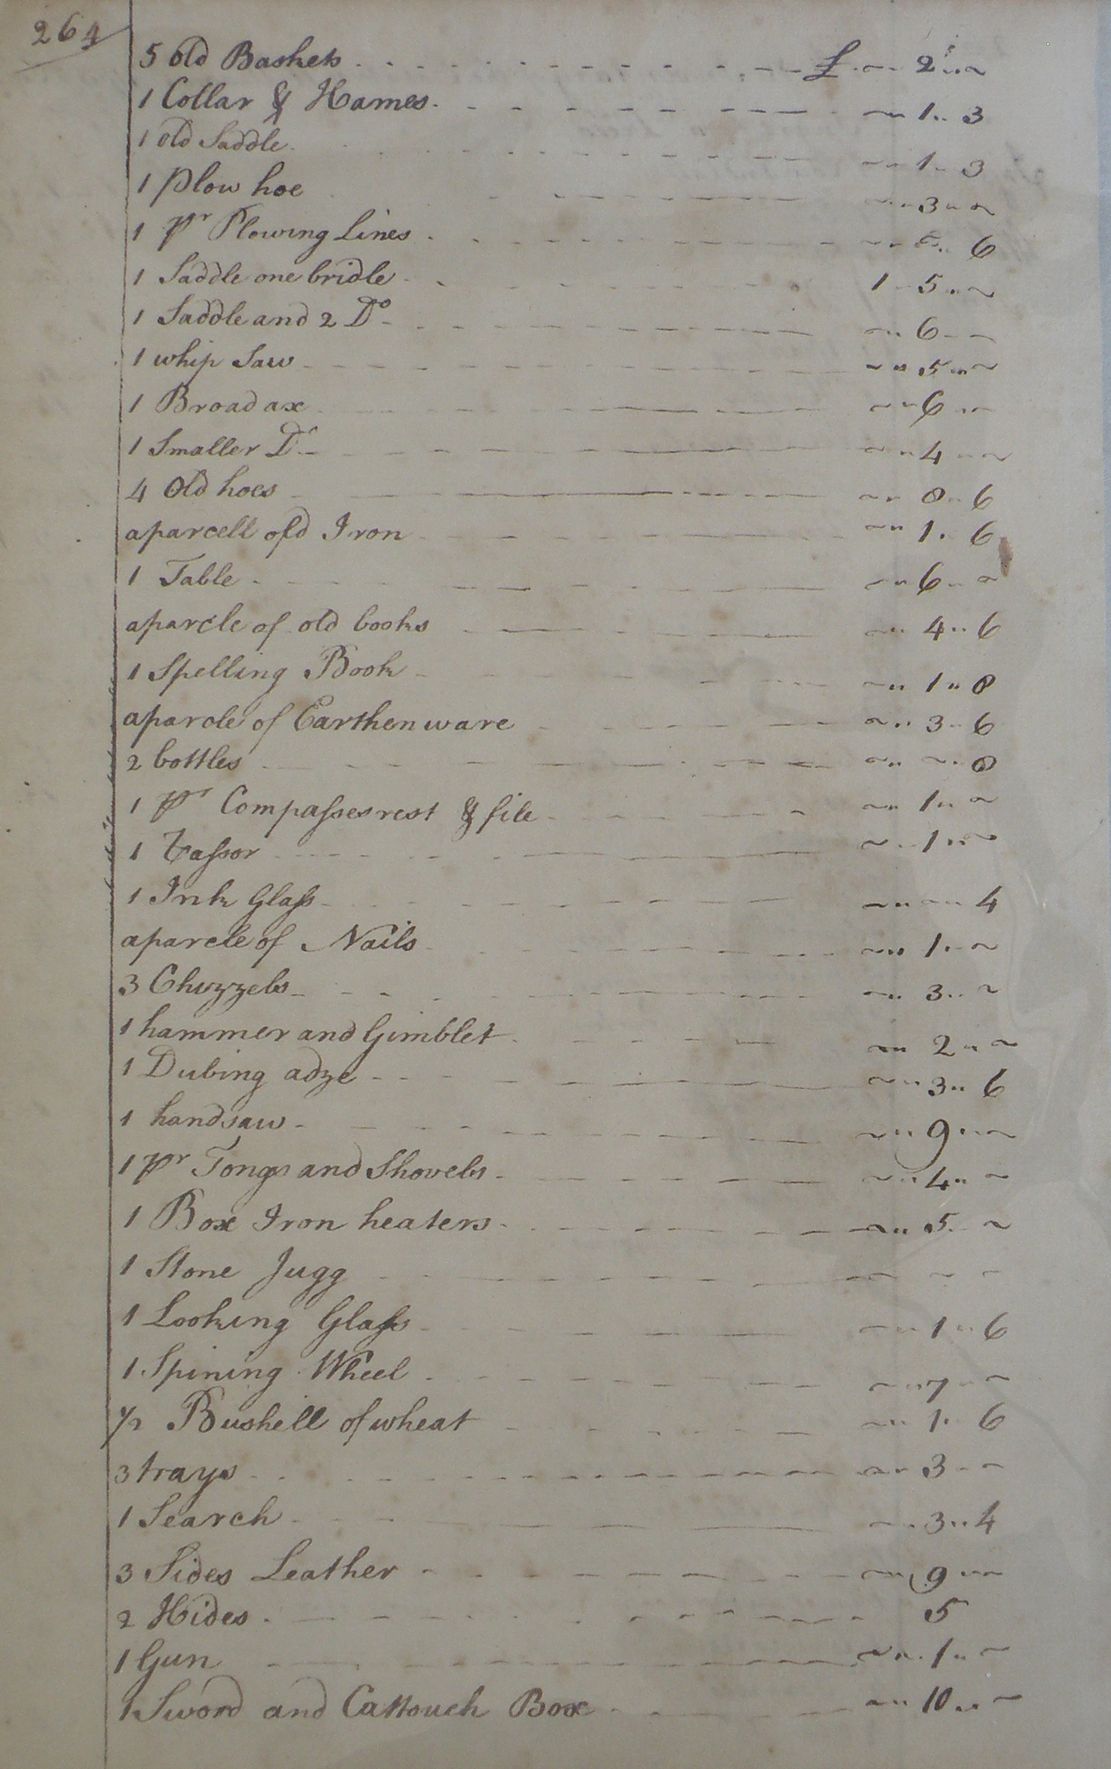 264
5 old Baskets £ ~ 2 .. ~
1 Collar & Hames ~ 1 .. 3
1 old Saddle ~ 1 .. 3
1 plow hoe ~ 3 .. ~
1 pr Plowing Lines ~ .. 6
1 Saddle one bridle 1 .. 5 .. ~
1 Saddle and 2 Do ~ 6 ~
1 whip Saw ~ 5 .. ~
1 Broad ax ~ 6 .. ~
1 Smaller Do ~ 4 .. ~
4 Old hoes ~ 8 .. 6
aparcell old Iron ~ 1 .. 6
1 Table ~ 6 .. ~
aparcle of old books ~ 4 .. 6
1 Spelling Book ~ 1 .. 8
aparcle of Earthen ware ~ 3 .. 6
2 bottles ~ ~ .. 8
1 pr Compasses rest & file ~ 1 .. ~
1 ~ 1 .. ~
1 Ink Glass ~ ~ 4
aparcle of Nails ~ 1 .. ~
3 Chizzels ~ 3 .. ~
1 hammer and Gimblet ~ 2 .. ~
1 Dubing adze ~ 3 .. 6
1 handsaw ~ 9 .. ~
1 pr Tongs and Shovels ~ 4 .. ~
1 Box Iron heaters ~ 5 .. ~
1 Stone Jugg ~ ~ ~
1 Looking Glass ~ 1 .. 6
1 Spining Wheel ~ 7 .. ~
1/2 Bushell of wheat ~ 1 .. 6
3 trays ~ 3 .. ~
1 Search ~ 3 .. 4
3 Sides Leather ~ 9 .. ~
2 Hides 5
1 Gun ~ 1 .. ~
1 Sword and Cattouch Box ~ 10 .. ~